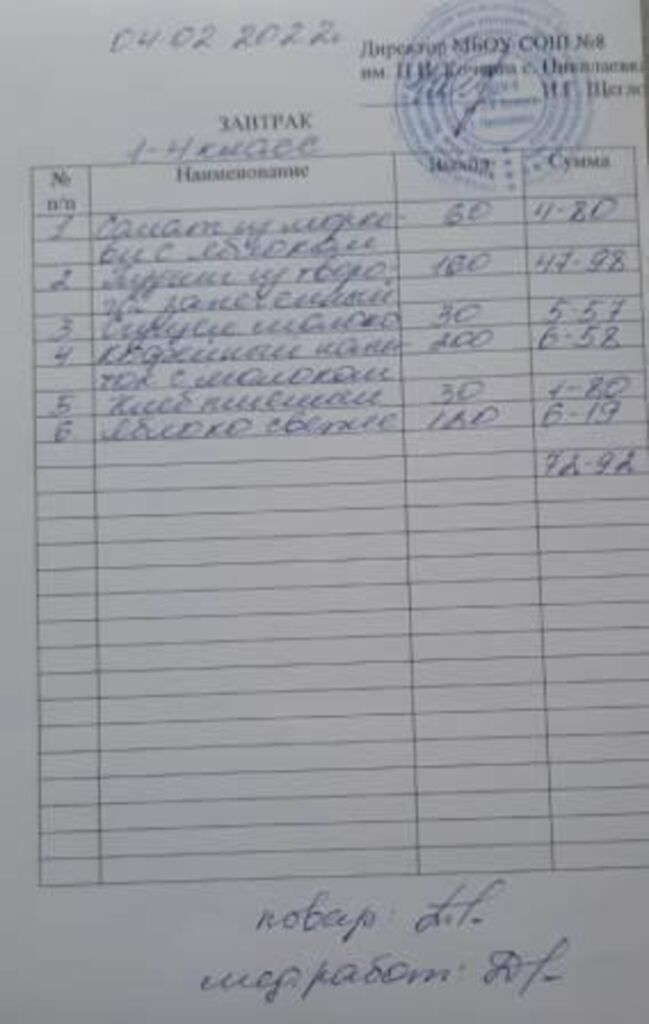 04.02 2022г.
Директор МБОУ СОШ №8
им. П.И. с.
И.Г.
ЗАВТРАК
1-4 класс
№ п/п Наименование Выход Сумма
1 Салат из морко- 60 4-80
ви с яблоком
2 Пудинг из творо- 160 47-98
га запеченный
3 молоко 30 5-57
4 Кофейный напи- 200 6-58
ток с молоком
5 Хлеб пшенич 30 1-80
6 Яблоко свежее 120 6-19
72-92
повар:
мед работ: